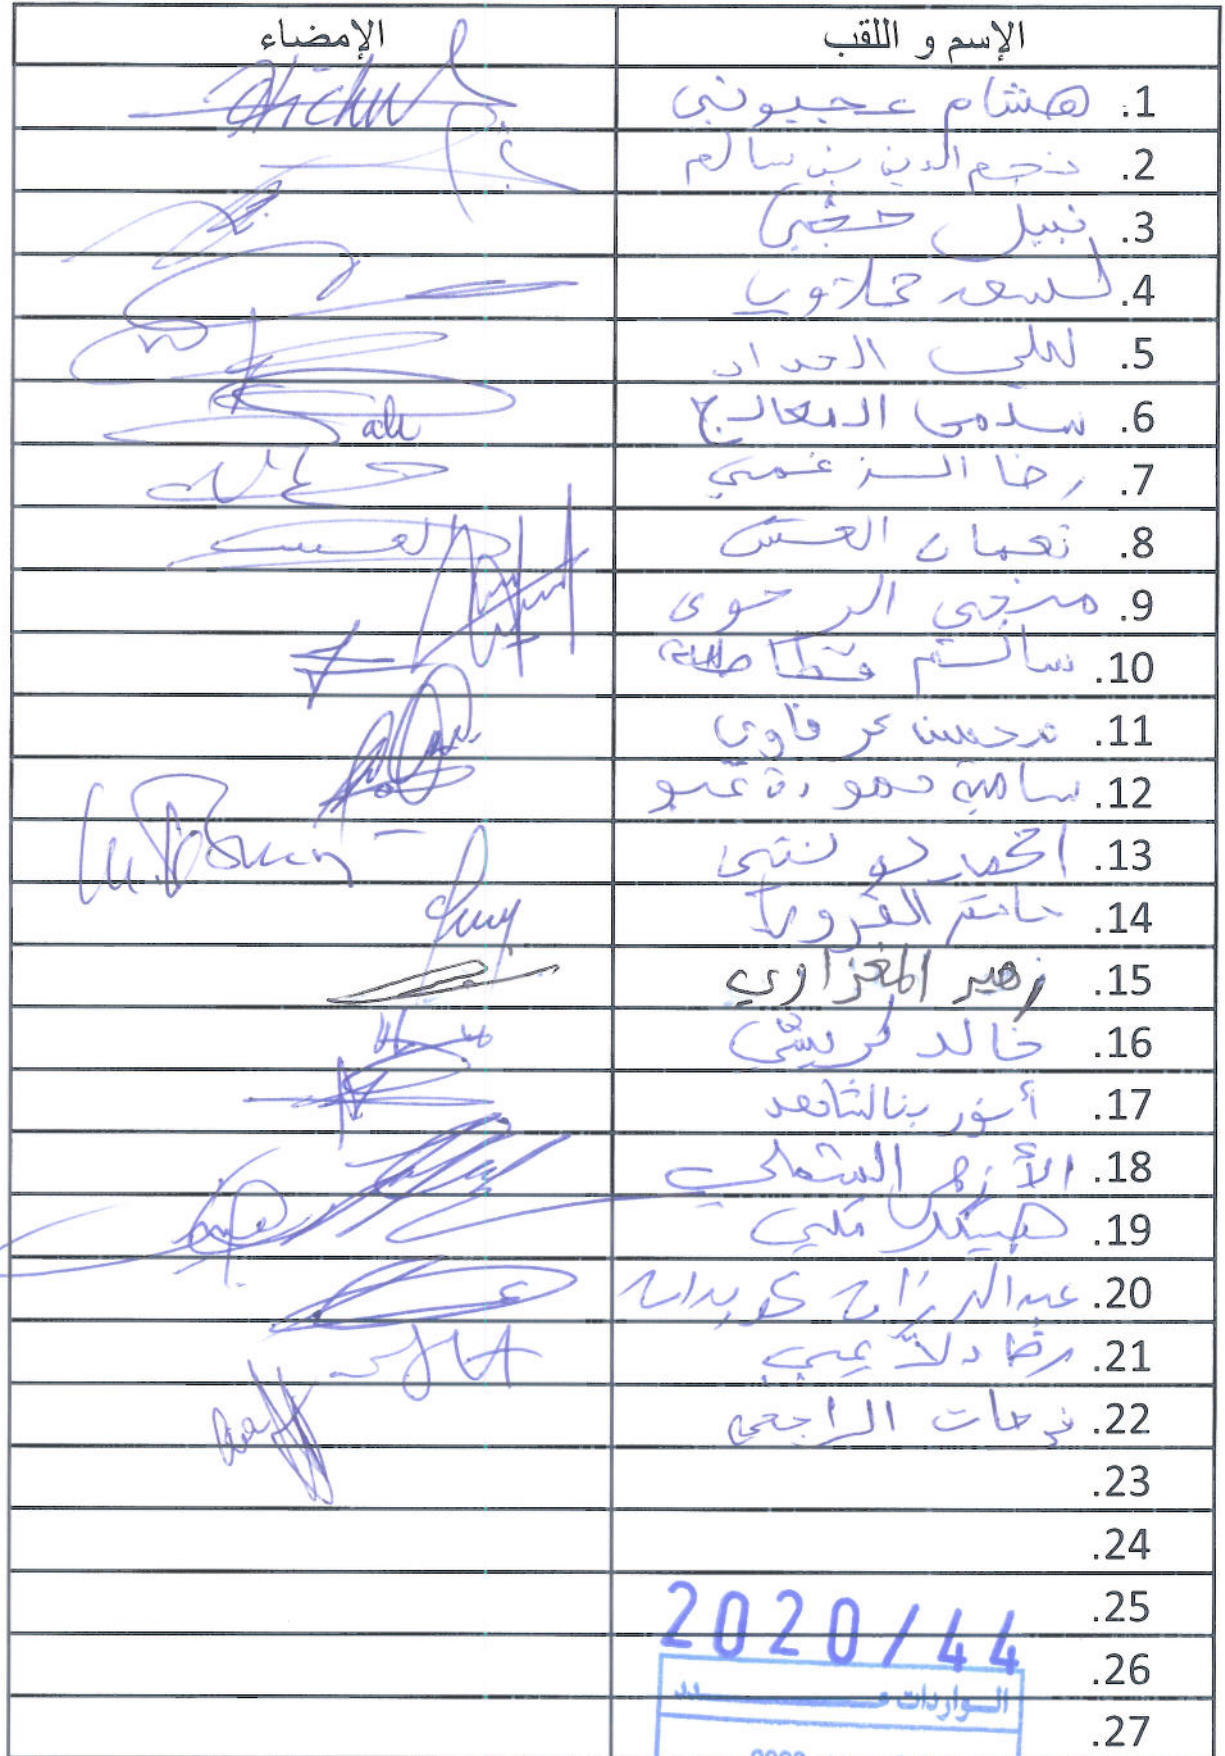 الإسم و اللقب الإمضاء
1. هشام عجبوني
2. نجم الدين بن سالم
3. نبيل حجي
4.
5. ليلى الحداد
6. سلمى المعالج
7. رضا الزغمي
8. نعمان العش
9. منجي الرحوي
10. سالم قطاطة
11. محسن عرفاوي
12. سامية حمودة عبو
13. امحمد بوننني
14. حاتم القروي
15. زهير المغزاوي
16. خالد كريشي
17. أنور بنالشاهد
18. الأزهر الشملي
19. هيكل مكي
20. عبدالرزاق عويدات
21. رضا دلاّعي
22. فرحات الراجحي
23.
24.
25.
2020/44
26.
الـواردات عـــدد
27.